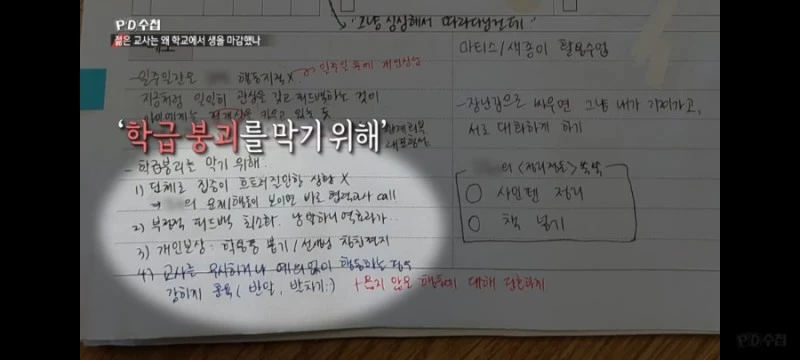 PD수첩
젊은 교사는 왜 학교에서 생을 마감했나
그냥 심심해서 따라다닌건데
마티스/색종이 활용수업
- 일주일간은 행동지적 X → 일주일 후에 개인상담
지금처럼 일일이 관심을 갖고 피드백하는 것이
- 장난감으로 싸우면 그냥 내가 가져가고,
서로 대화하게 하기
'학급 붕괴를 막기 위해'
- 학급붕괴는 막기 위해.
1) 단체로 집중이 흐트러질만한 상황 X
→ 의 문제행동이 보이면 바로 협력교사 call
2) 부정적 피드백 최소화.
3) 개인보상: 학용품 뽑기/선생님 칭찬편지
4) 교사를 무시하거나 예의없이 행동하는
강하게 훈육 (반말, 발차기 :) + 옳지 않은 행동에 대해
의 <정리정돈> 쏙쏙
○ 사인펜 정리
○ 책 넣기
PD수첩